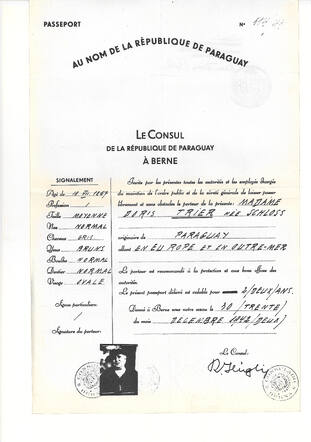 PASSEPORT
N°
AU NOM DE LA RÉPUBLIQUE DE PARAGUAY
LE CONSUL
DE LA RÉPUBLIQUE DE PARAGUAY
À BERNE
SIGNALEMENT
Profession /
Taille MOYENNE
Nez NORMAL
Cheveux GRIS
Yeux BRUNS
Bouche NORMAL
Dentier NORMAL
Visage OVALE
Signes particuliers:
/
Signature du porteur:
Invite par les présentes toutes les autorités et les employés chargés
du maintien de l'ordre public et de la sûreté générale de laisser passer
librement et sans obstacles le porteur de la présente: MADAME
DORIS TRIER NÉE SCHLOSS
originaire de PARAGUAY
allant EN EUROPE ET EN OUTRE-MER
Le porteur est recommandé à la protection et aux bons offices des
autorités.
Le présent passeport délivré est valable pour 2/DEUX/ANS.
Donné à Berne sous notre sceau le 30/TRENTE/
du mois DECEMBRE 1942
Le Consul: